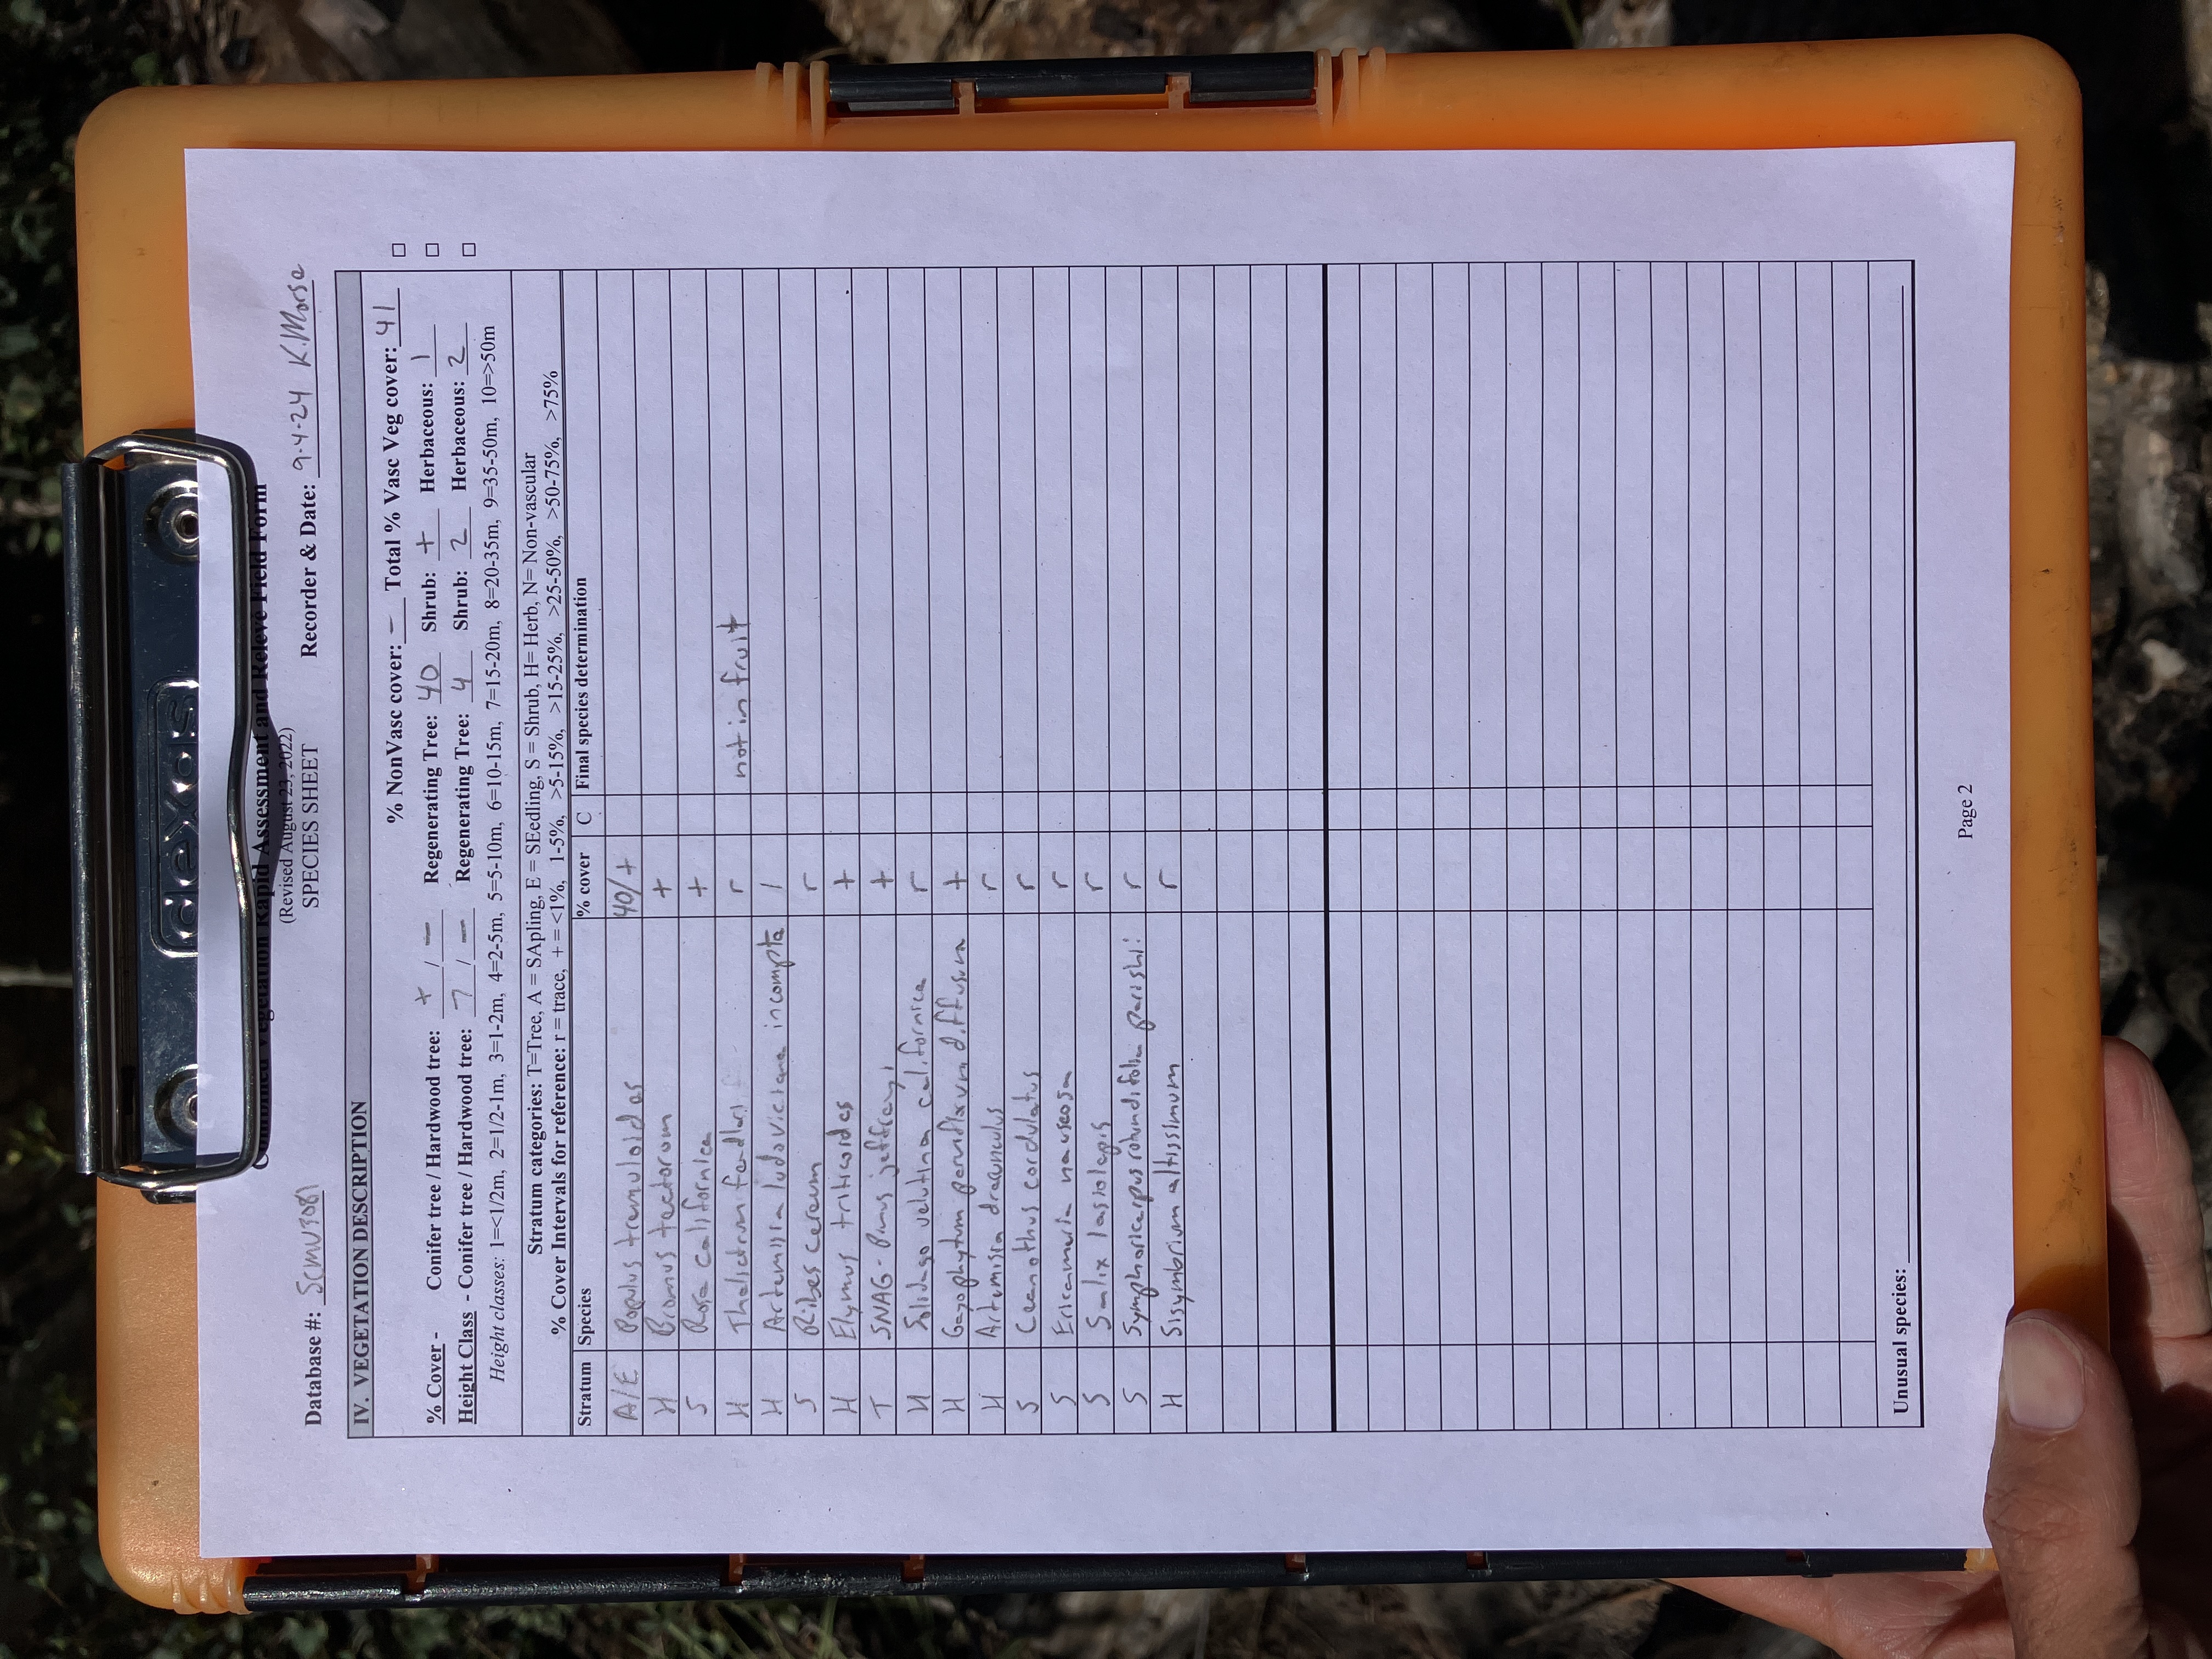 dexas
Combined Vegetation Rapid Assessment and Relevé Field Form
(Revised August 23, 2022)
SPECIES SHEET
Database #: Recorder & Date: 9-4-24 K.Morse
IV. VEGETATION DESCRIPTION
% NonVasc cover: — Total % Vasc Veg cover: 41 □
% Cover - Conifer tree / Hardwood tree: + / — Regenerating Tree: 40 Shrub: + Herbaceous: 1 □
Height Class - Conifer tree / Hardwood tree: 7 / — Regenerating Tree: 4 Shrub: 2 Herbaceous: 2 □
Height classes: 1=<1/2m, 2=1/2-1m, 3=1-2m, 4=2-5m, 5=5-10m, 6=10-15m, 7=15-20m, 8=20-35m, 9=35-50m, 10=>50m
Stratum categories: T=Tree, A = SApling, E = SEedling, S = Shrub, H= Herb, N= Non-vascular
% Cover Intervals for reference: r = trace, + = <1%, 1-5%, >5-15%, >15-25%, >25-50%, >50-75%, >75%
Stratum Species % cover C Final species determination
A/E Populus tremuloides 40/+
H Bromus tectorum +
S Rosa californica +
H Thalictrum fendleri r not in fruit
H Artemisia ludoviciana incompta 1
S Ribes cereum r
H Elymus triticoides +
T SNAG - Pinus jeffreyi +
H Solidago velutina californica r
H Gayophytum diffusum +
H Artemisia dracunculus r
S Ceanothus cordulatus r
S Ericameria nauseosa r
S Salix lasiolepis r
S Symphoricarpus rotundifolia parishii r
H Sisymbrium altissimum r
Unusual species:
Page 2